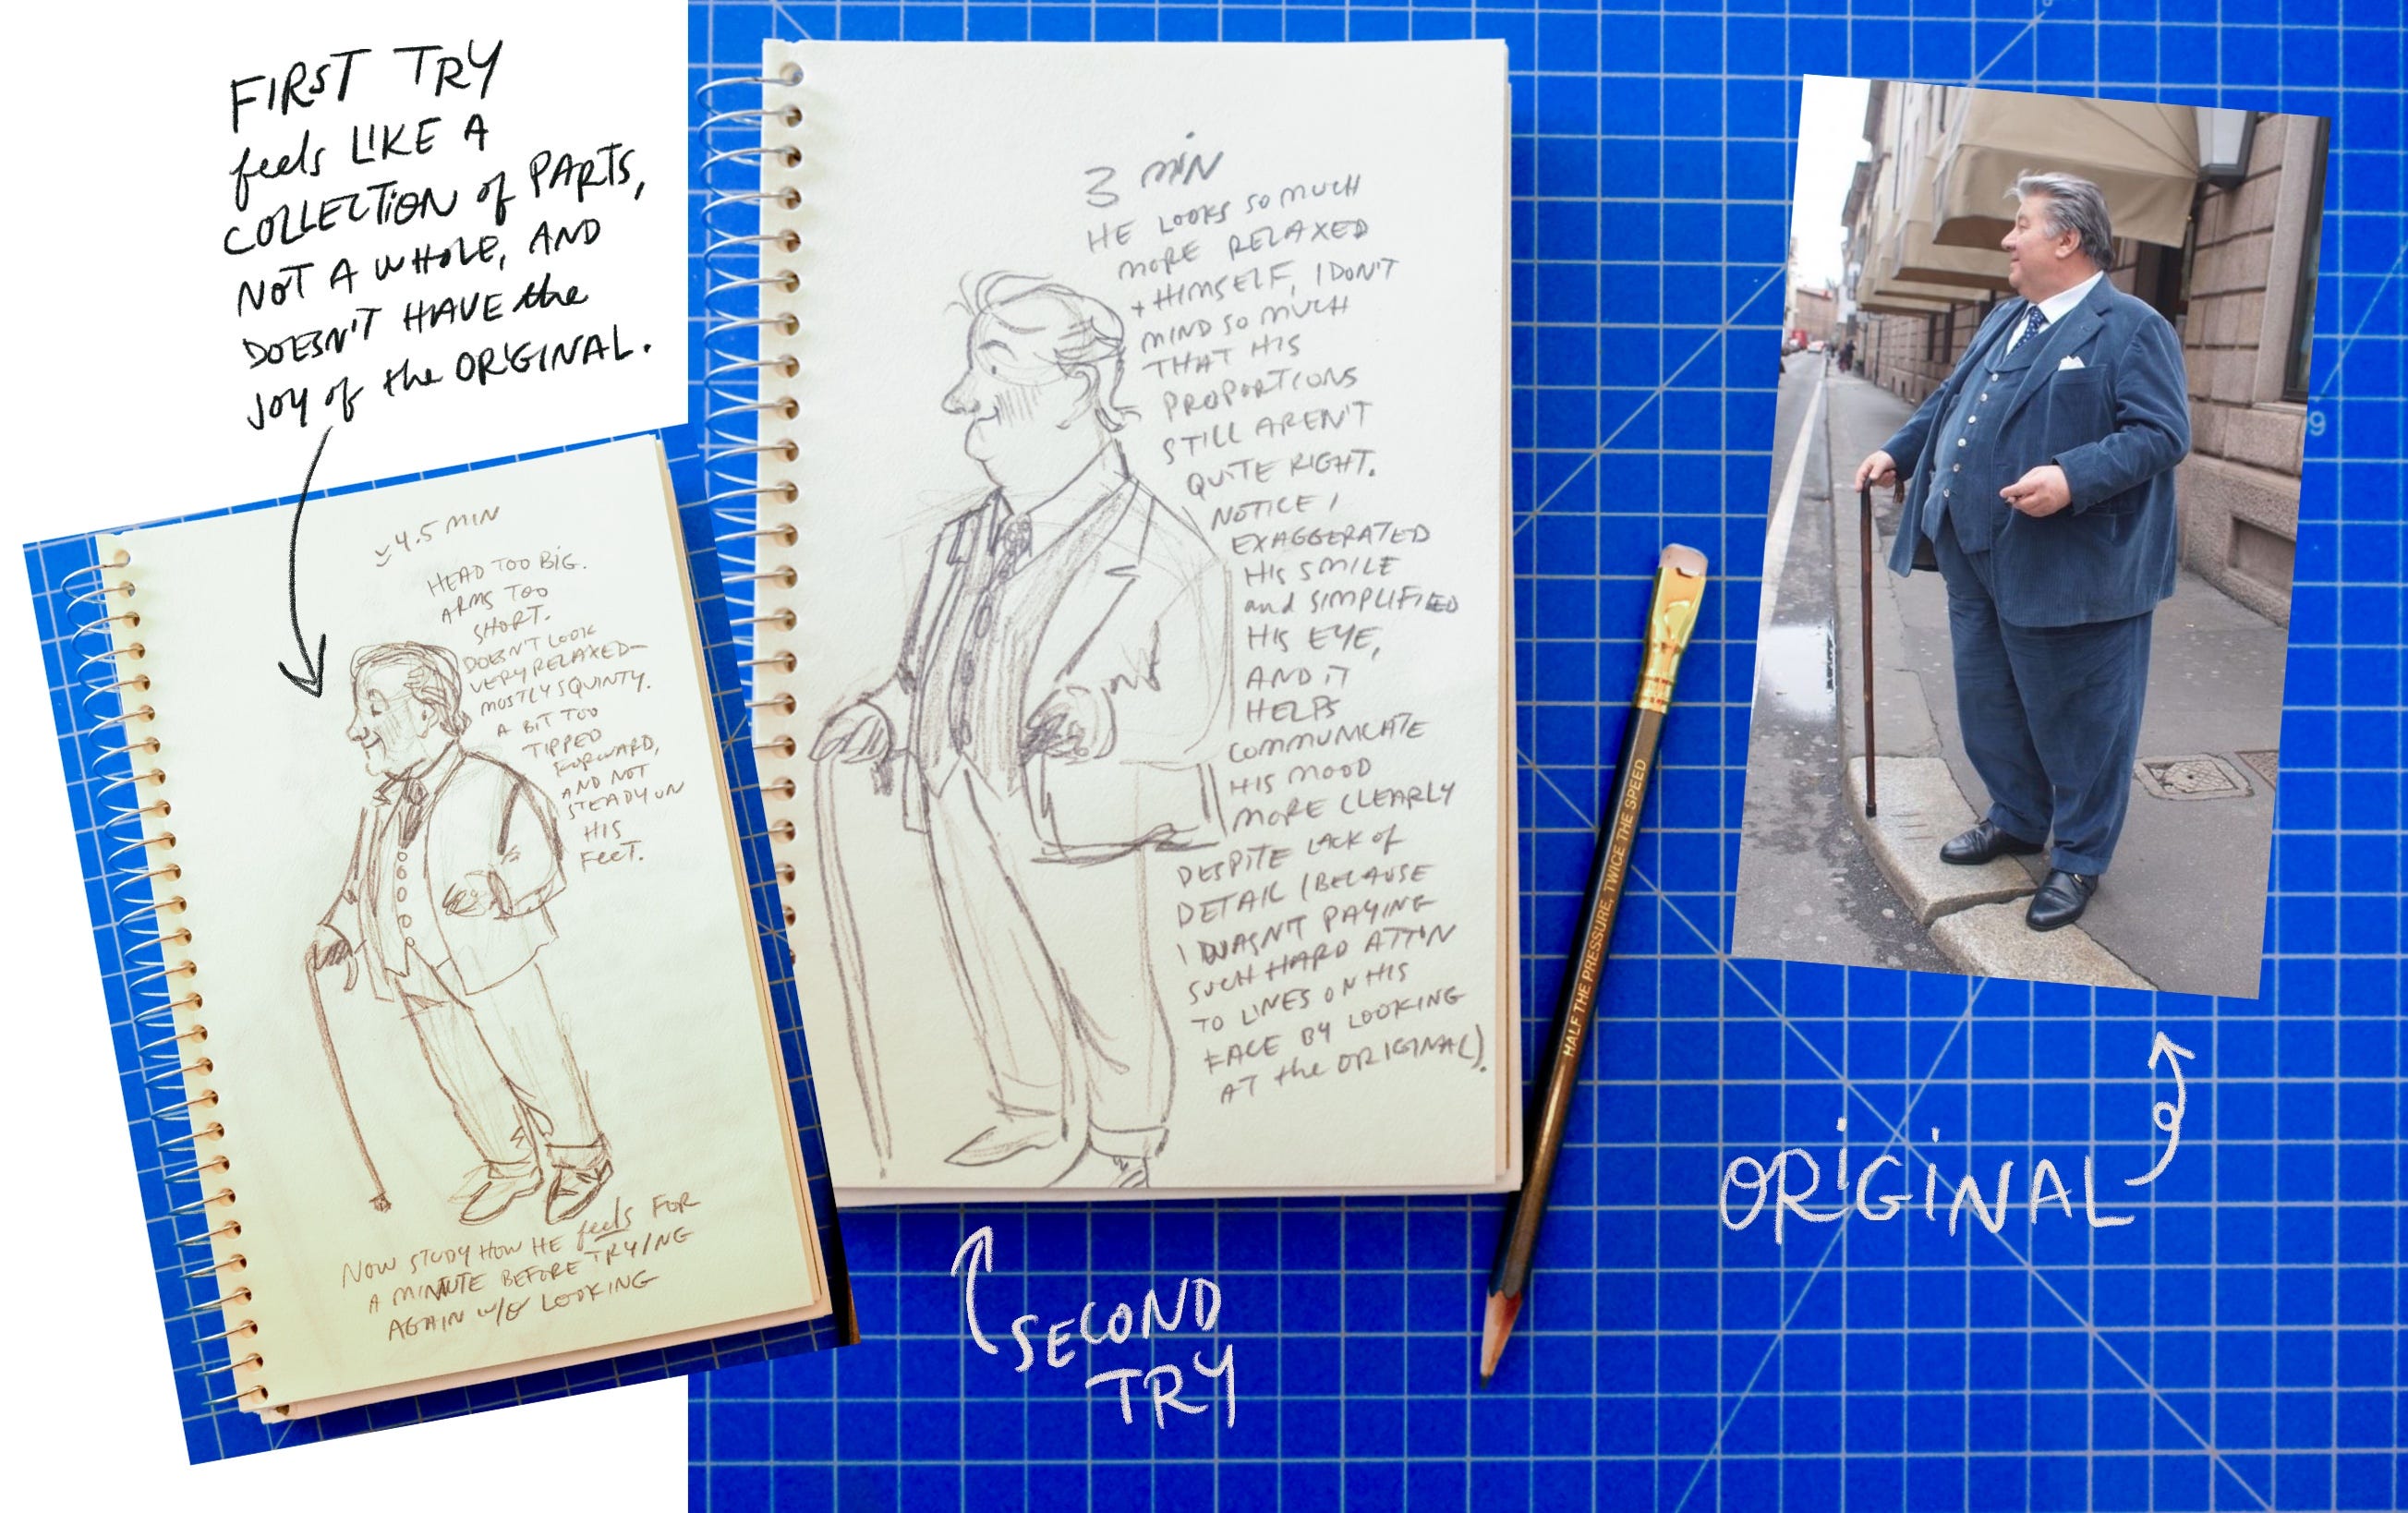 FIRST TRY
feels LIKE A
COLLECTION of PARTS,
NOT A WHOLE, AND
DOESN'T HAVE the
JOY of the ORIGINAL.
~4.5 MIN
HEAD TOO BIG.
ARMS TOO
SHORT.
DOESN'T LOOK
VERY RELAXED—
MOSTLY SQUINTY.
A BIT TOO
TIPPED
FORWARD,
AND NOT
STEADY ON
HIS
FEET.
NOW STUDY HOW HE feels FOR
A MINUTE BEFORE TRYING
AGAIN w/o LOOKING
3 MIN
HE LOOKS SO MUCH
MORE RELAXED
+ HIMSELF, I DON'T
MIND SO MUCH
THAT HIS
PROPORTIONS
STILL AREN'T
QUITE RIGHT.
NOTICE I
EXAGGERATED
HIS SMILE
and SIMPLIFIED
HIS EYE,
AND IT
HELPS
COMMUNICATE
HIS MOOD
MORE CLEARLY
DESPITE LACK of
DETAIL (BECAUSE
I WASN'T PAYING
SUCH HARD ATT'N
TO LINES ON HIS
FACE BY LOOKING
AT the ORIGINAL).
SECOND
TRY
HALF THE PRESSURE, TWICE THE SPEED
ORIGINAL
9